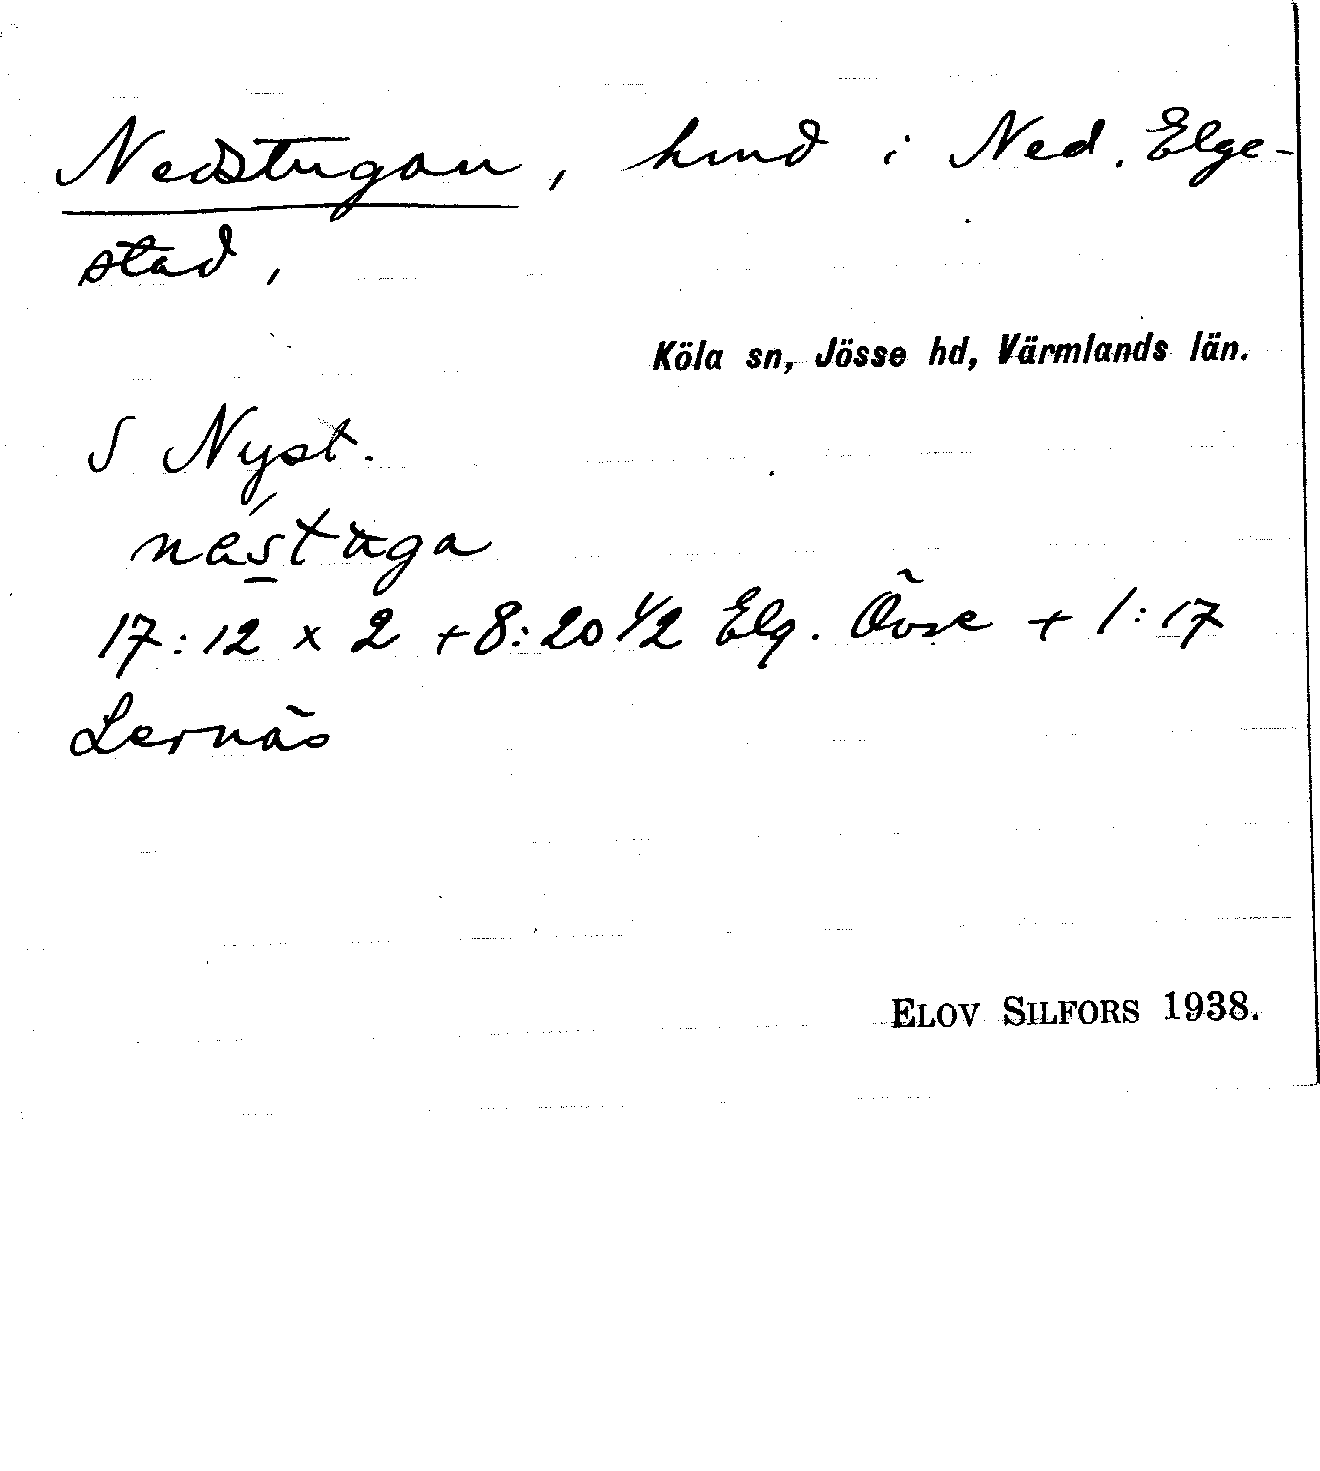 Nedstugan, hmd i Ned. Elge-
stad,
Köla sn, Jösse hd, Värmlands län.
S Nyst.
nèstaga
17:12 x 2 + 8:20 1/2 Elg. Övre + 1:17
Lernäs
ELOV SILFORS 1938.